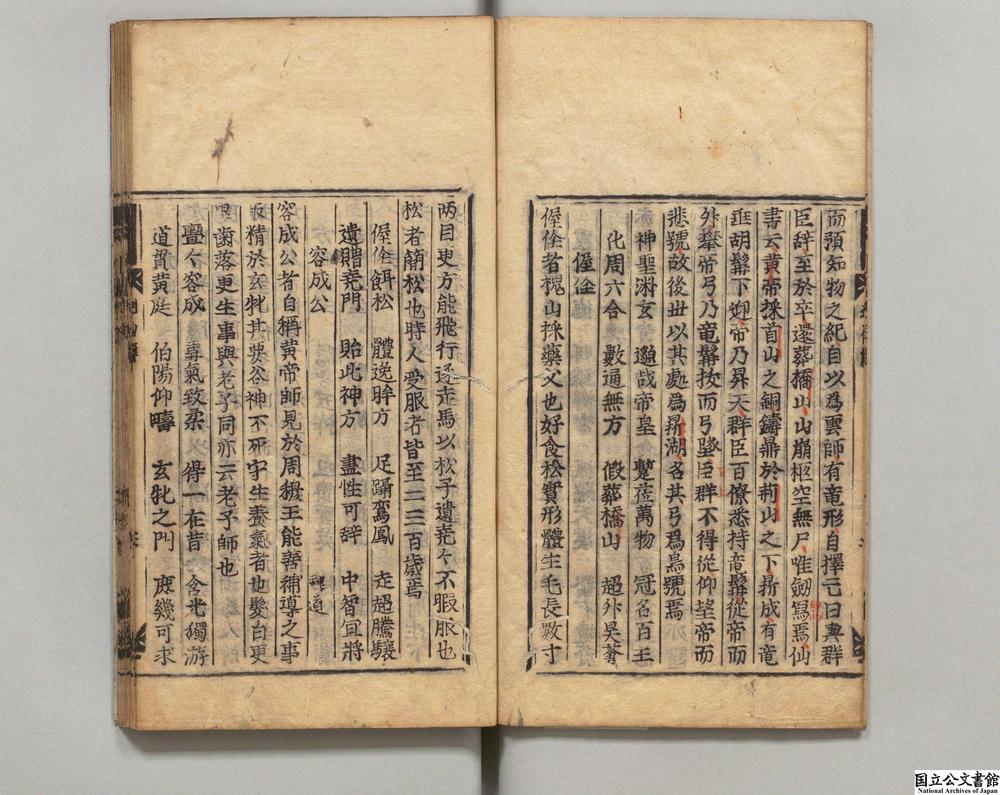 而預知物之紀自以爲雲師有竜形自擇亡日與群
臣辞至於卒還葬橋山山崩柩空無尸唯劔舄焉仙
書云黄帝採首山之銅鑄鼎於荊山之下鼎成有竜
垂胡髯下迎帝乃昇天群臣百僚悉持竜髯從帝而
外攀帝弓乃竜髯拔而弓墜臣群不得從仰望帝而
悲號故後世以其處爲鼎湖名其弓爲烏號焉
神聖淵玄 邈哉帝皇 蹔莅萬物 冠名百王
化周六合 數通無方 假葬橋山 超外昊蒼
偓佺
偓佺者槐山採藥父也好食松實形體生毛長數寸
两目更方能飛行逐走馬以松子遺堯々不暇服也
松者簡松也時人受服者皆至二三百歳焉
偓佺餌松 體逸眸方 足躡鸞鳳 走超騰驤
遺贈堯門 貽此神方 盡性可辞 中智冝將
容成公
容成公者自稱黄帝師見於周穆王能善補導之事
取精於玄牝其要谷神不死守生養氣者也髮白更
黒歯落更生事與老子同亦云老子師也
亹々容成 專氣致柔 得一在昔 含光獨游
道貫黄庭 伯陽仰疇 玄牝之門 庶幾可求
国立公文書館
National Archives of Japan